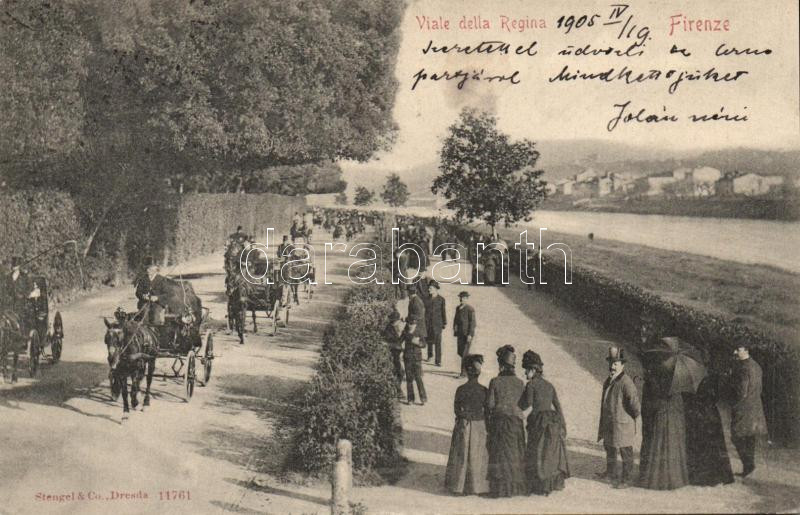 Viale della Regina 1905 IV/19. Firenze
Szeretettel üdvözli az Arno
partjáról Mindkettőjüket
Jolán néni
darabanth
Stengel & Co., Dresda 11761